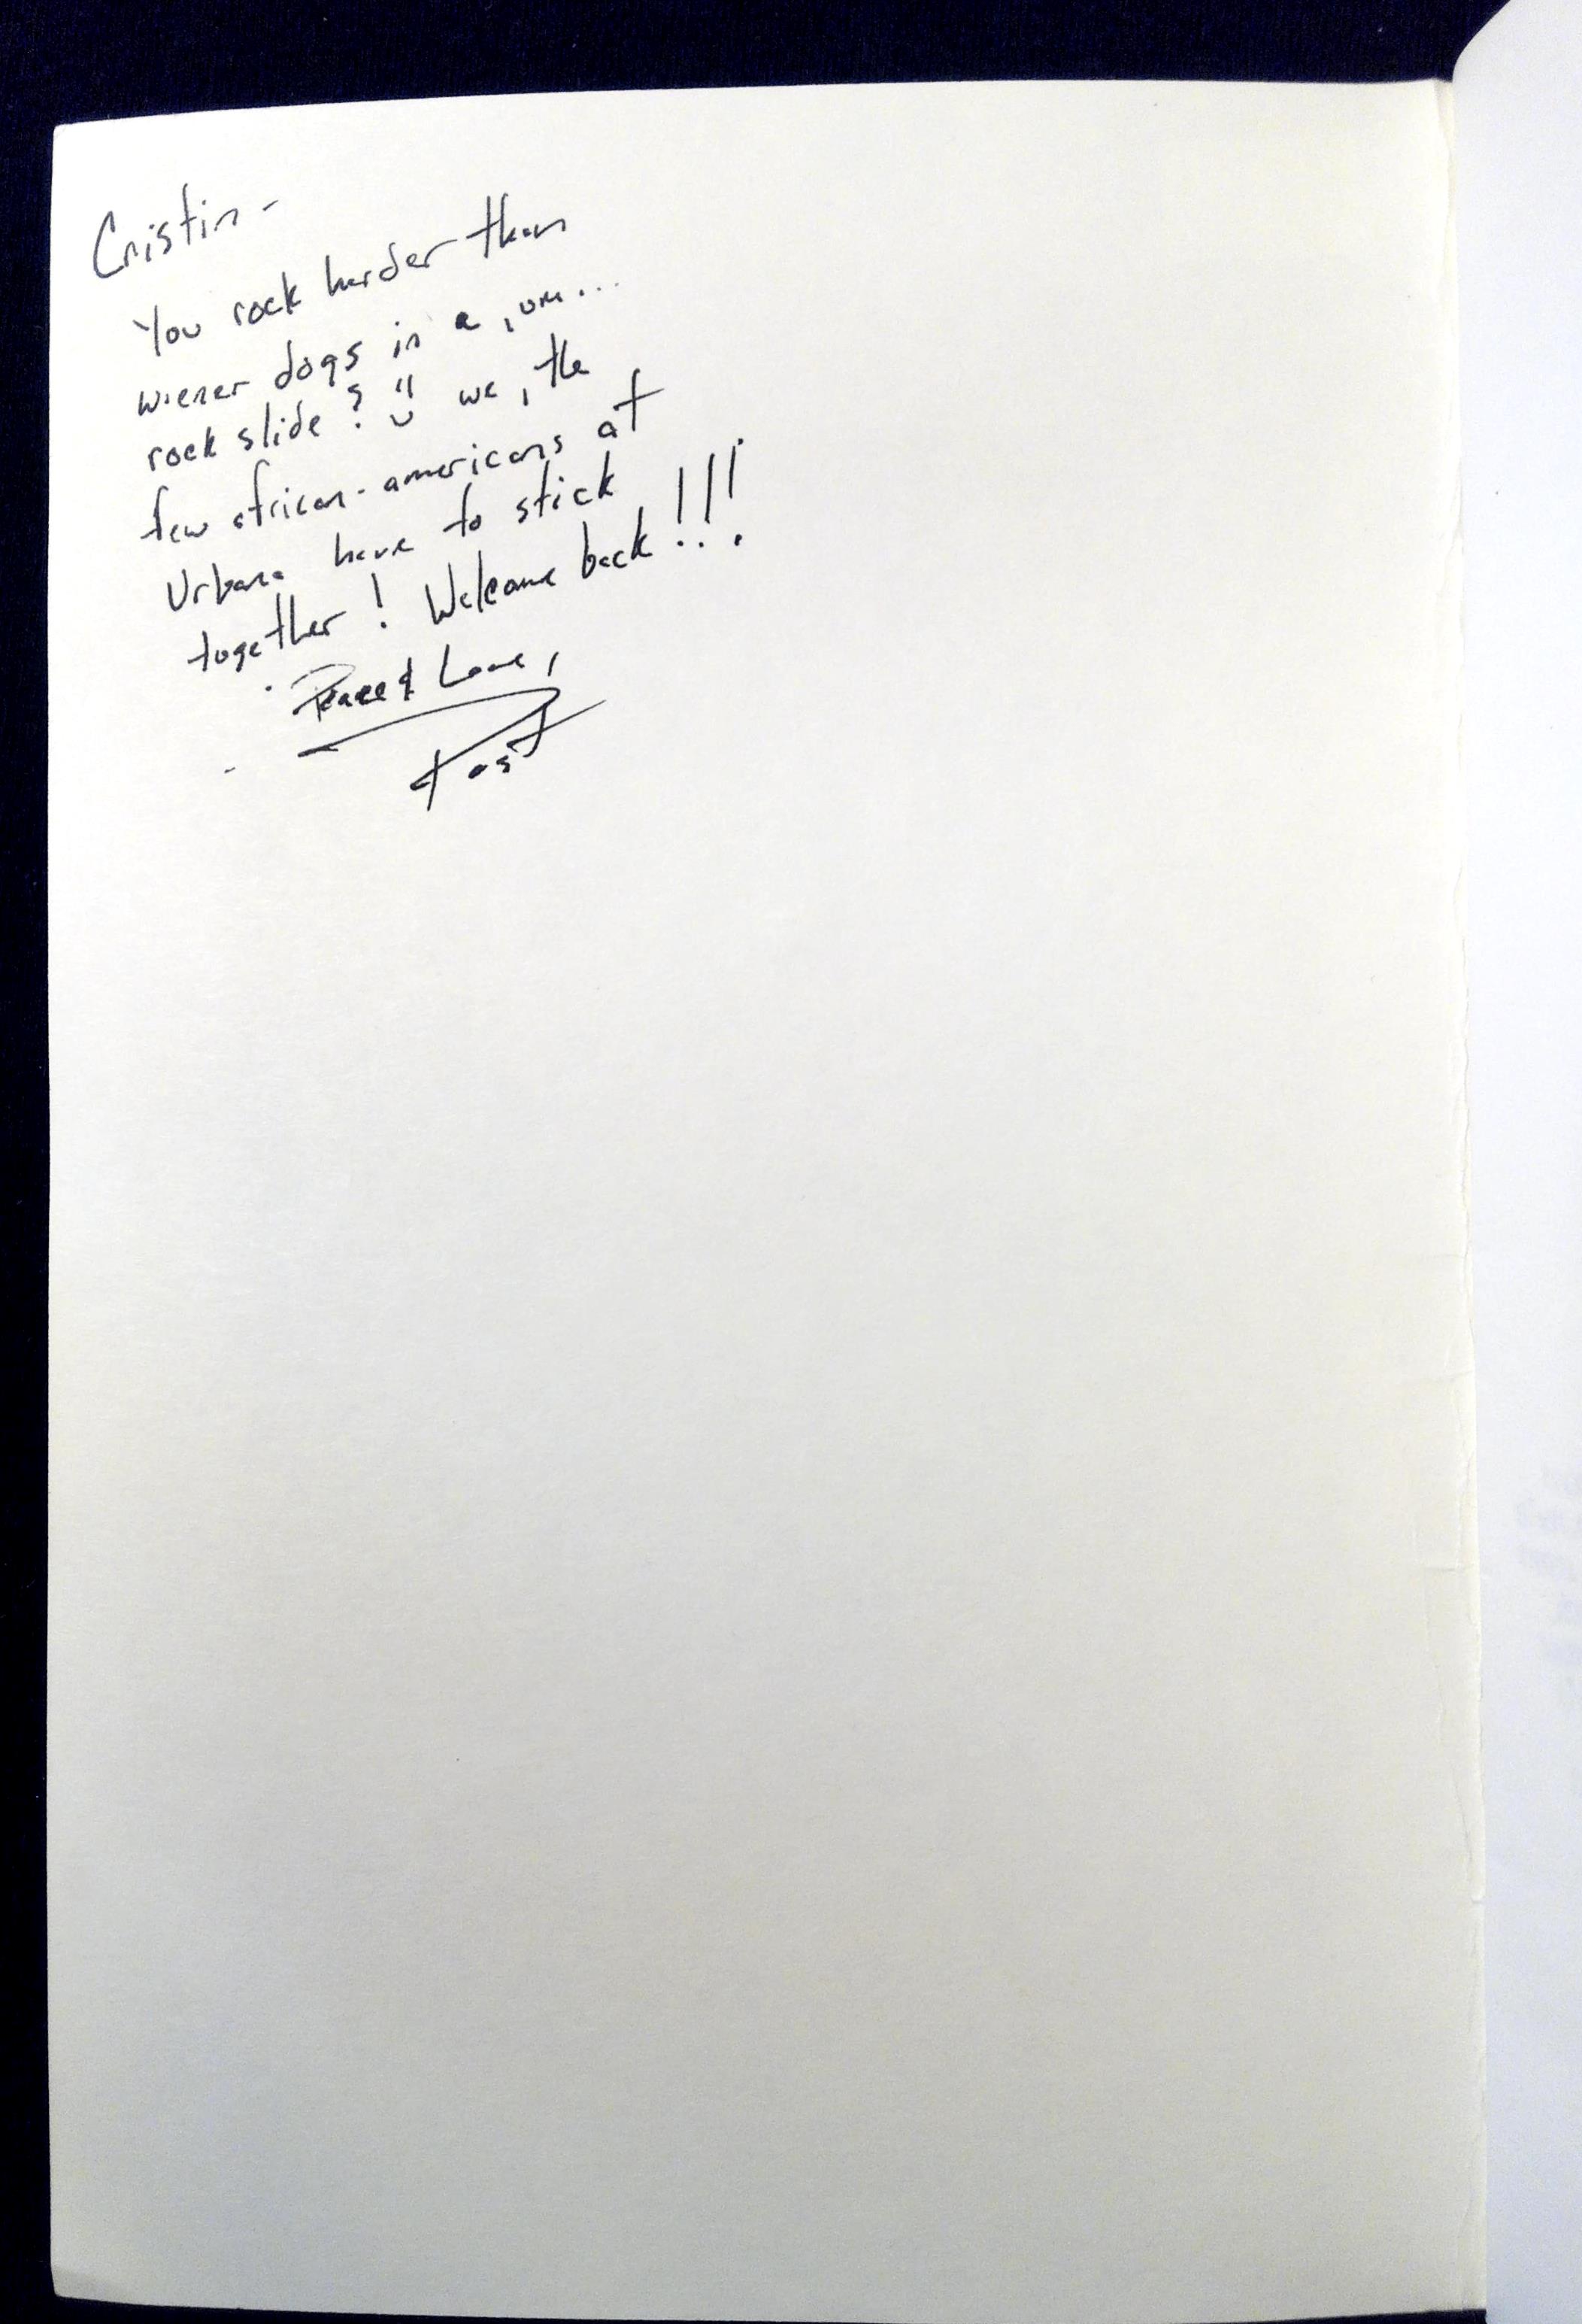 Cristin -
You rock harder than
wiener dogs in a, um...
rock slide? we, the
few african-americans at
Urbana have to stick
together! Welcome back!!!
Peace & Love,